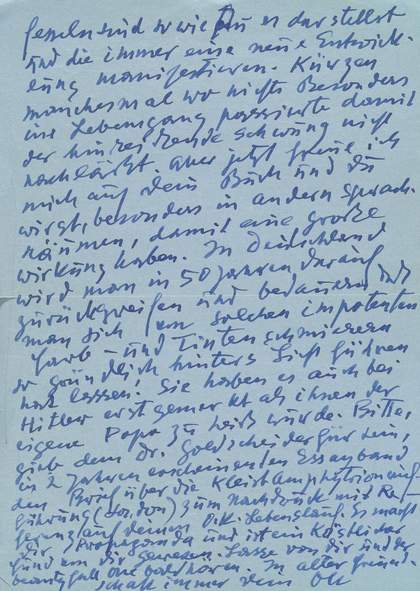 fesselnd sind so wie Du es darstellst
und die immer eine neue Entwick-
lung manifestieren. Kürzen
manchesmal wo nichts Besonders
im Lebensgang passierte damit
der hinreißende Schwung nicht
nachläßt, aber jetzt freue ich
mich auf dein Buch und du
wirst, besonders in andern Sprach-
räumen, damit eine große
wirkung haben. In Deutschland
wird man in 50 Jahren darauf
zurückgreifen und bedauern daß
man sich von solchen impotenten
Farb- und Tintenschmierern
so gründlich hinters Licht führen
hat lassen. Sie haben es auch bei
Hitler erst gemerkt als ihnen der
eigene Popo zu heiß wurde. Bitte
gieb dem Dr. Goldscheider für sein,
in 2 Jahren erscheinenden Essayband
den Brief über die Kleist Amphytrion auf-
führung (London) zum Nachdruck mit
auf deinen O.K. Lebenslauf. Es macht
dir Propaganda und ist ein Köstlicher
Fund von dir gewesen. Lasse von dir und der
beautyfull One bald hören. In alter freund-
schaft immer dein OK